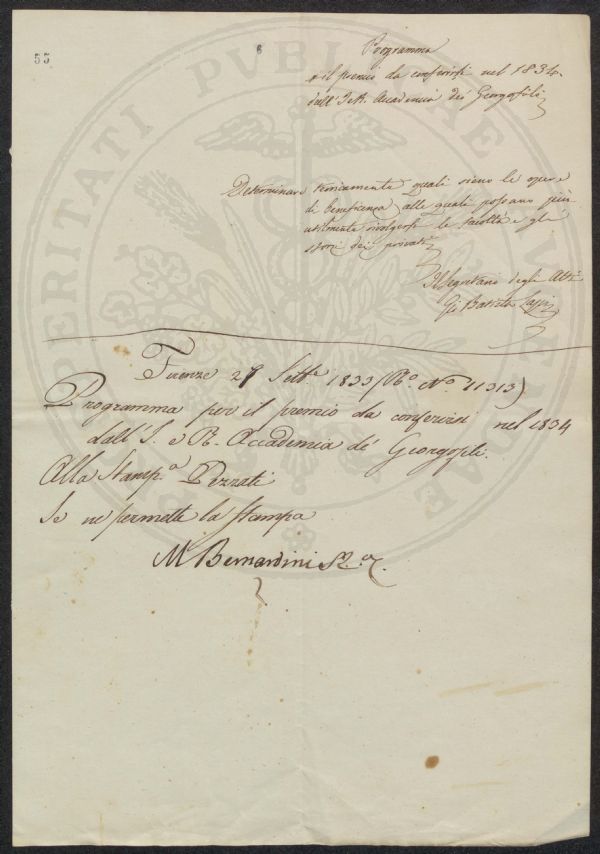 55
6
Programma
per il premio da conferirsi nel 1834
dall' I e R. Accademia dei Georgofili
Determinare teoricamente quali sieno le opere
di beneficenza, alle quali possano più
utilmente rivolgersi le facoltà e gli
sforzi dei privati
Il Segretario degli Atti
Gi Batista Lapi
Firenze 29 Settbe 1833 (Ro. No. 11313)
Programma per il premio da conferirsi nel 1834
dall' I. e R. Accademia de' Georgofili.
Alla Stampa Pezzati
Se ne permette la Stampa
M Bernardini
PROSPERITATI PVBLICAE AVGENDAE